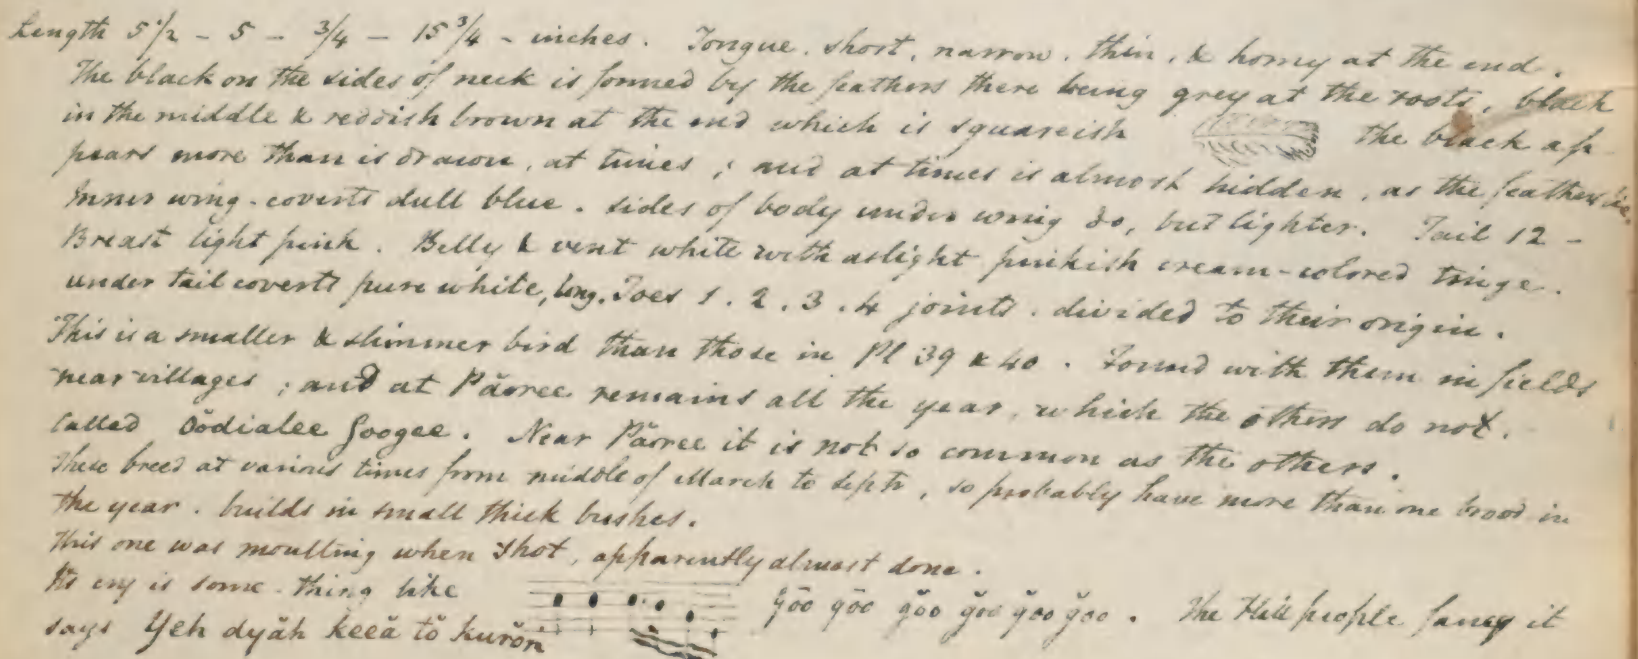 Length 5 1/2 - 5 - 3/4 - 15 3/4 - inches. Tongue, short, narrow, thin, & horny at the end.
The black on the sides of neck is formed by the feathers there being grey at the roots, black
in the middle & reddish brown at the end which is squareish the black ap-
pears more than is drawn, at times; and at times is almost hidden, as the feathers lie.
Inner wing-coverts dull blue. sides of body under wing do, but lighter. Tail 12 -
Breast light pink. Belly & vent white with a slight pinkish cream-colored tinge.
under tail coverts pure white, long. Toes 1. 2. 3. 4 joints. divided to their origin.
This is a smaller & slimmer bird than those in Pl 39 & 40. Found with them in fields
near villages; and at Păoree remains all the year, which the others do not.
Called Oŏdialee Googee. Near Păoree it is not so common as the others.
These breed at various times from middle of March to Septr, so probably have more than one brood in
the year. builds in small thick bushes.
This one was moulting when shot, apparently almost done.
Its cry is some-thing like gōō gōō gŏŏ gŏŏ gŏŏ gŏŏ. The Hill people fancy it
says Yeh dyăh keeă tŏ kurŏn